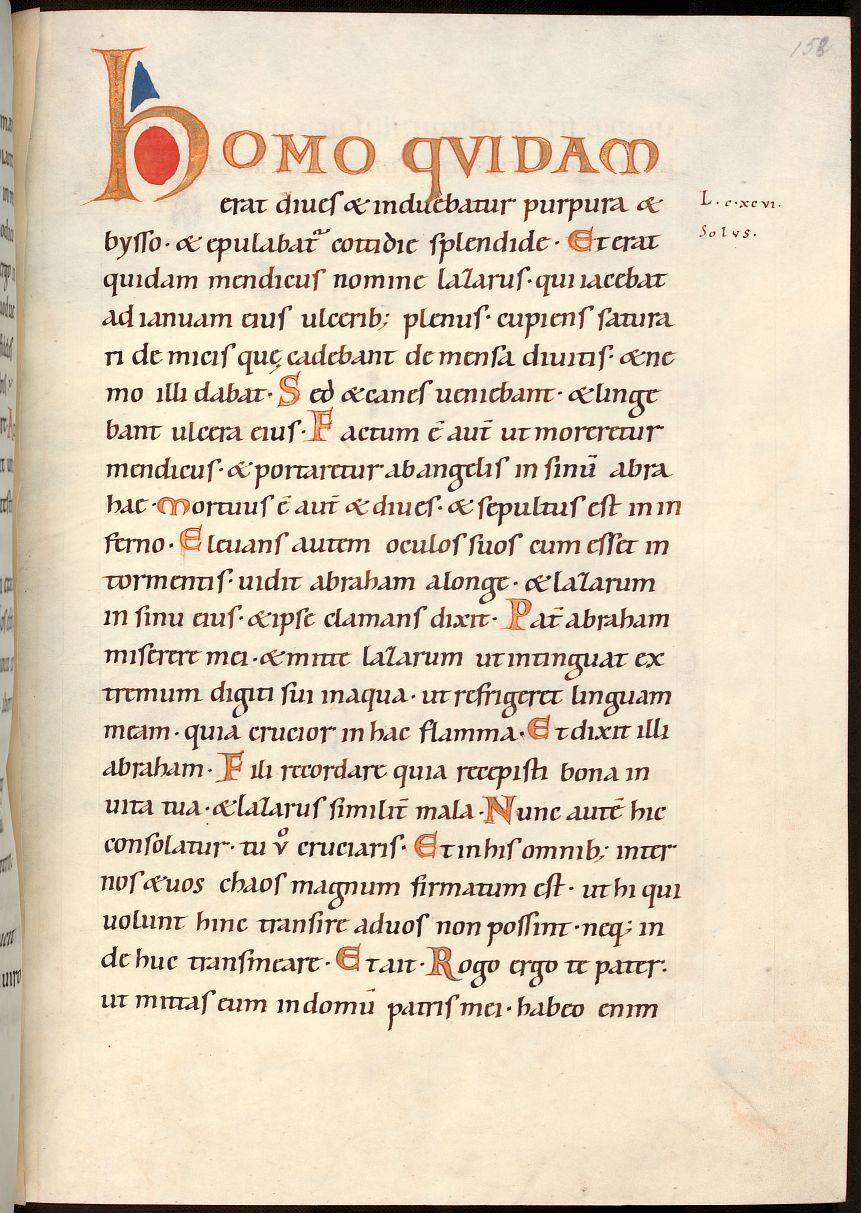 158
HOMO QVIDAM
erat diues & induebatur purpura &
L. c. xcvi.
bysso · & epulabat᷑ cottidie splendide · Et erat
Solvs.
quidam mendicus nomine lazarus · qui iacebat
ad ianuam eius ulcerib; plenus · cupiens satura
ri de micis quę cadebant de mensa diuitis · & ne
mo illi dabat · Sed & canes ueniebant · & linge
bant ulcera eius · Factum ē aut̄ ut moreretur
mendicus · & portaretur ab angelis in sinū abra
hae · Mortuus ē aut̄ & diues · & sepultus est in in
ferno · Eleuans autem oculos suos cum esset in
tormentis · uidit abraham a longe · & lazarum
in sinu eius · & ipse clamans dixit · Pat̄ abraham
miserere mei · & mitte lazarum ut intinguat ex
tremum digiti sui in aqua · ut refrigeret linguam
meam · quia crucior in hac flamma · Et dixit illi
abraham · Fili recordare quia recepisti bona in
uita tua · & lazarus similit̄ mala · Nunc autē hic
consolatur · tu vͦ cruciaris · Et in his omnib; inter
nos & uos chaos magnum firmatum est · ut hi qui
uolunt hinc transire ad uos non possint · neq; in
de huc transmeare · Et ait · Rogo ergo te pater ·
ut mittas eum in domū patris mei · habeo enim